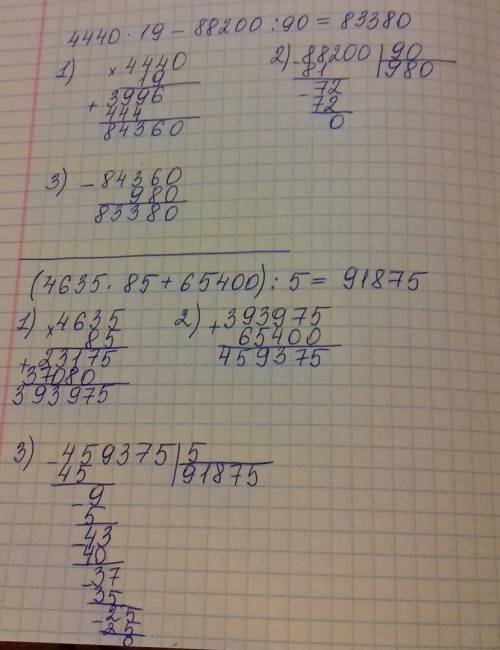 4440 · 19 - 88200 : 90 = 83380
1) × 4440
19
+ 3996
444
84360
2) - 88200 | 90
81 | 980
- 72
72
0
3) - 84360
980
83380
(4635 · 85 + 65400) : 5 = 91875
1) × 4635
85
+ 23175
37080
393975
2) + 393975
65400
459375
3) - 459375 | 5
45 | 91875
- 9
5
- 43
40
- 37
35
- 25
25
0